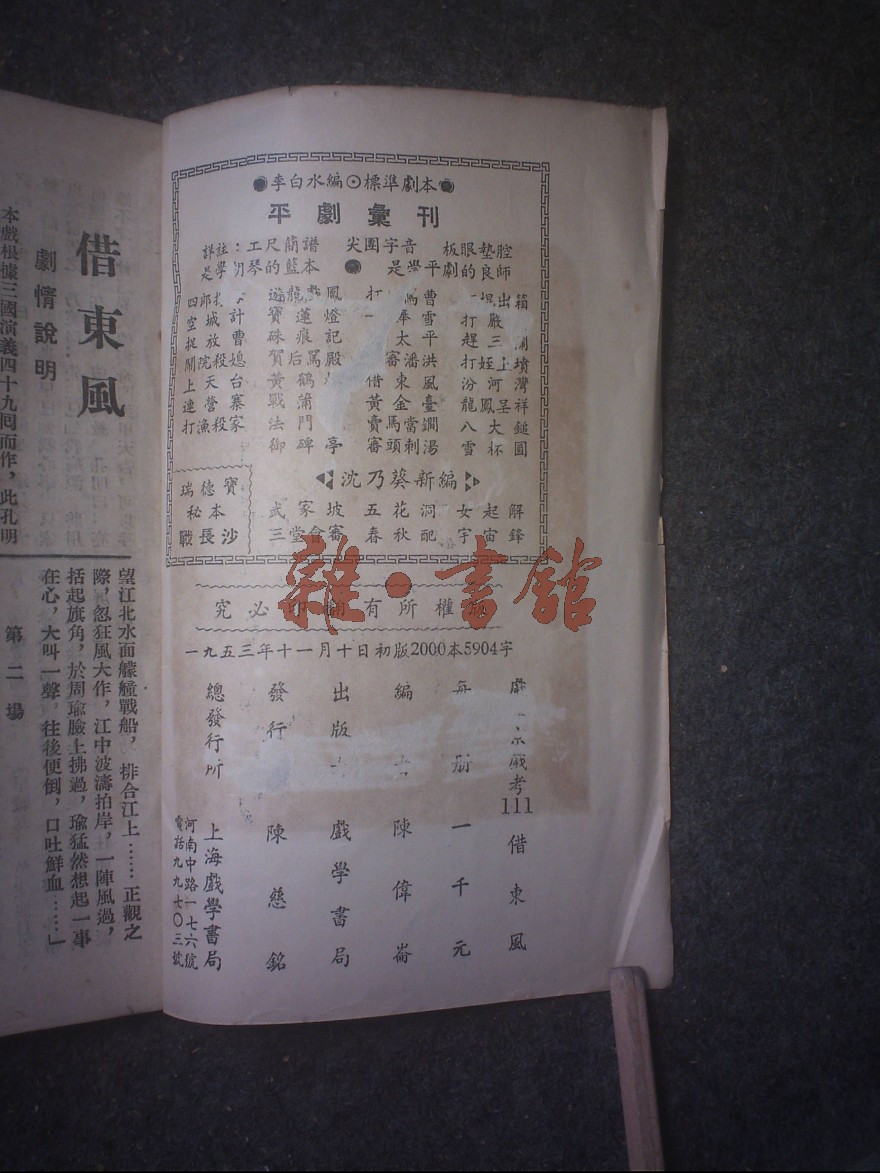 李白水編⊙標準劇本
平劇彙刊
詳註：工尺簡譜 尖團字音 板眼墊腔
是學胡琴的籃本 是學平劇的良師
空城計
捉放曹
上天台
連營寨
打漁殺家
遊龍戲鳳
寶蓮燈
硃痕記
賀后罵殿
黃鶴
戰蒲
法門
御碑亭
打曹
雪
太平
審潘洪
借東風
黃金臺
賣馬當鐧
審頭刺湯
出箱
打嚴
趕三
打姪上墳
汾河灣
龍鳳呈祥
八大鎚
雪杯圓
瑞德寶
秘本
戰長沙
沈乃葵新編
武家坡
三堂會審
五花洞
春秋配
女起解
宇宙鋒
雜·書館
權所有 必究
一九五三年十一月十日初版2000本5904字
戲考111 借東風
每册 一千元
編 陳偉崙
出版 戲學書局
發行 陳慈銘
總發行所 上海戲學書局
河南中路一七六號
電話九九七〇三號
借東風
劇情說明
本戲根據三國演義四十九回而作，此孔明
望江北水面艨艟戰船，排合江上……正觀之
際，忽狂風大作，江中波濤拍岸，一陣風過，
括起旗角，於周瑜臉上拂過，瑜猛然想起一事
在心，大叫一聲，往後便倒，口吐鮮血……」
第二場